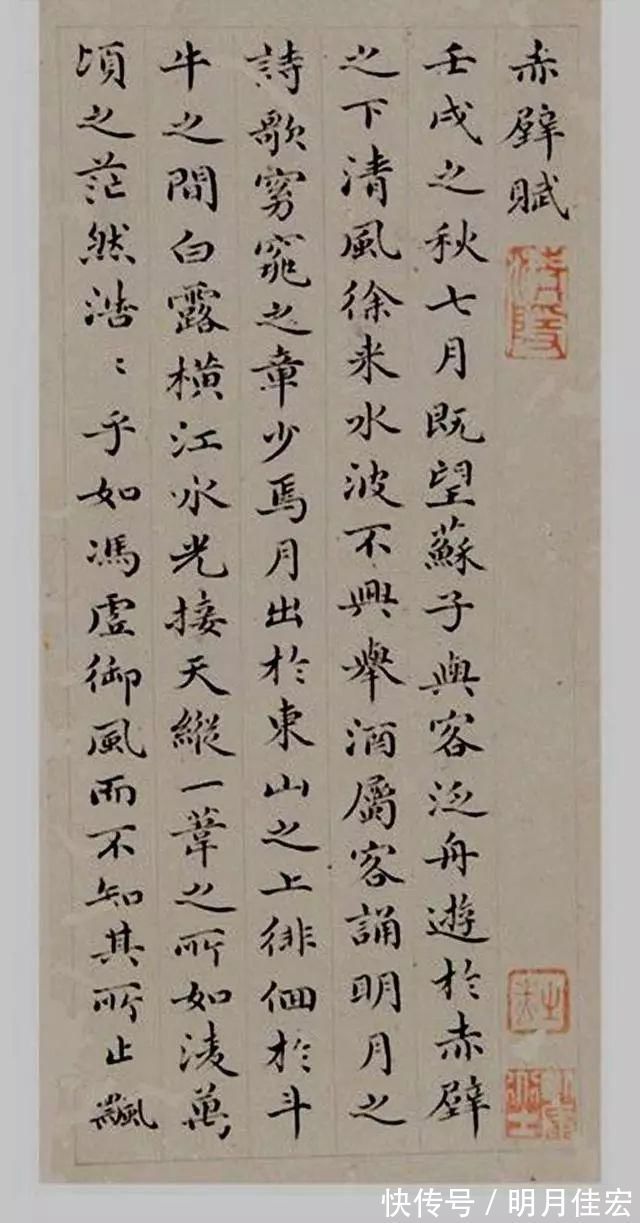 赤壁賦
壬戌之秋七月既望蘇子與客泛舟遊於赤壁
之下清風徐来水波不興舉酒屬客誦明月之
詩歌窈窕之章少焉月出於東山之上徘徊於斗
牛之間白露横江水光接天縱一葦之所如凌萬
頃之茫然浩〻乎如馮虛御風而不知其所止飄
快传号/明月佳宏